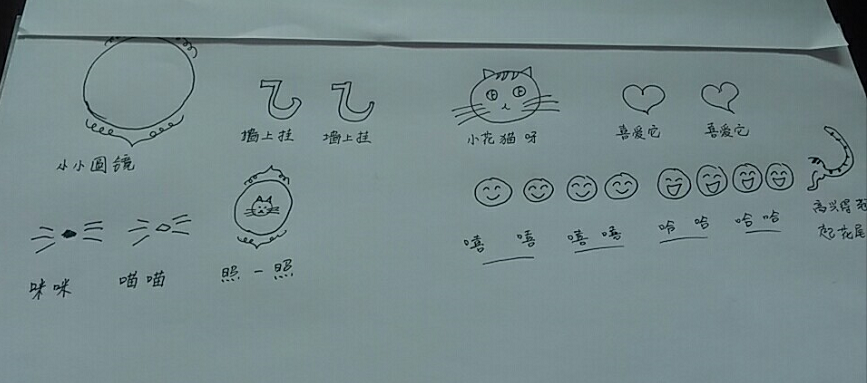 小小圆镜
墙上挂 墙上挂
小花猫呀
喜爱它 喜爱它
咪咪 喵喵 照一照
嘻 嘻 嘻 嘻 哈 哈 哈 哈
高兴得翘
起花尾